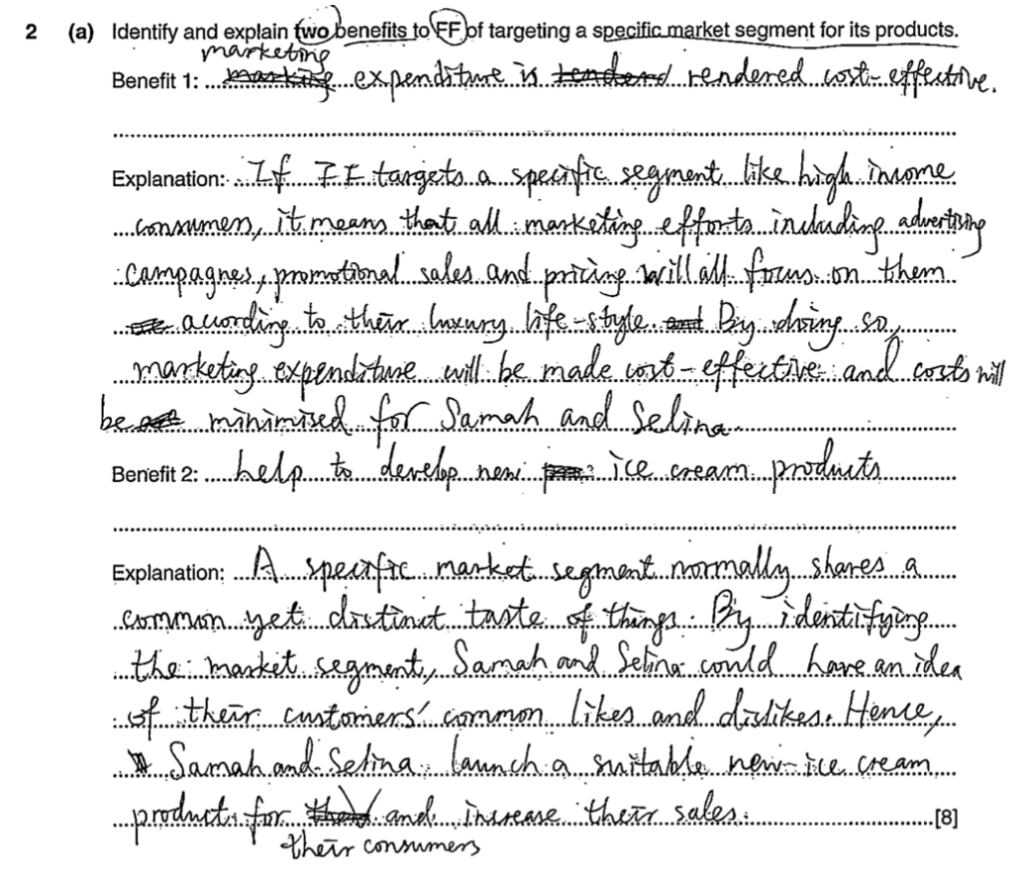 2 (a) Identify and explain two benefits to FF of targeting a specific market segment for its products.
marketing
Benefit 1: marking expenditure is rendered cost-effective.
Explanation: If FF targets a specific segment like high income
consumers, it means that all marketing efforts including advertising
campagnes, promotional sales and pricing will all focus on them
according to their luxury life-style. and By doing so,
marketing expenditure will be made cost-effective and costs will
be minimised for Samah and Selina
Benefit 2: help to develop new ice cream products
Explanation: A specific market segment normally shares a
common yet distinct taste of things. By identifying
the market segment, Samah and Selina could have an idea
of their customers' common likes and dislikes. Hence,
Samah and Selina launch a suitable new ice cream
product for and increase their sales. [8]
their consumers